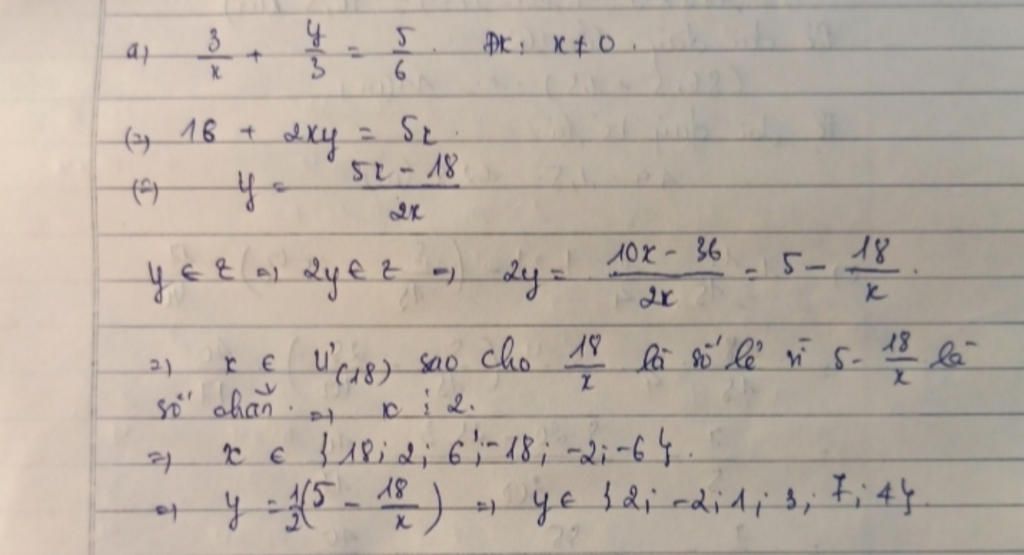 a) 3/x + y/3 = 5/6. ĐK: x ≠ 0.
(=) 18 + 2xy = 5x.
(=) y = (5x - 18)/(2x)
y ∈ Z (=) 2y ∈ Z => 2y = (10x - 36)/(2x) = 5 - 18/x.
=> x ∈ Ư(18) sao cho 18/x là số lẻ vì 5 - 18/x là
số chẵn. => x ⋮ 2.
=> x ∈ {18; 2; 6; -18; -2; -6}.
=> y = 1/2(5 - 18/x) => y ∈ {2; -2; 1; 3; 7; 4}.